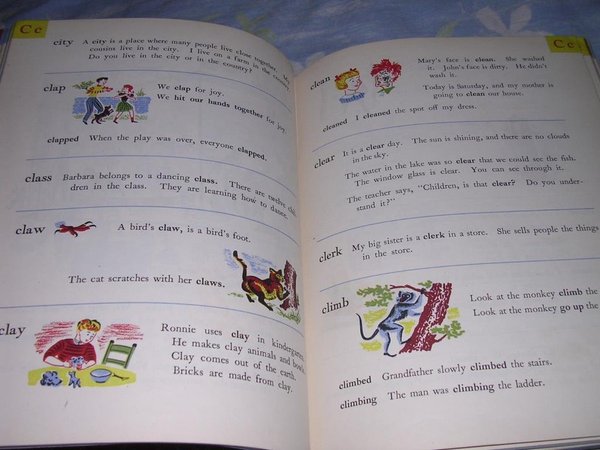 Cc
city A city is a place where many people live close together. My
cousins live in the city. I live on a farm in the country.
Do you live in the city or in the country?
clap We clap for joy.
We hit our hands together for joy.
clapped When the play was over, everyone clapped.
class Barbara belongs to a dancing class. There are twelve chil-
dren in the class. They are learning how to dance.
claw A bird's claw, is a bird's foot.
The cat scratches with her claws.
clay Ronnie uses clay in kindergarten.
He makes clay animals and bowls.
Clay comes out of the earth.
Bricks are made from clay.
Cc
clean Mary's face is clean. She washed
it. John's face is dirty. He didn't
wash it.
Today is Saturday, and my mother is
going to clean our house.
cleaned I cleaned the spot off my dress.
clear It is a clear day. The sun is shining, and there are no clouds
in the sky.
The water in the lake was so clear that we could see the fish.
The window glass is clear. You can see through it.
The teacher says, "Children, is that clear? Do you under-
stand it?"
clerk My big sister is a clerk in a store. She sells people the things
in the store.
climb Look at the monkey climb the
Look at the monkey go up the
climbed Grandfather slowly climbed the stairs.
climbing The man was climbing the ladder.